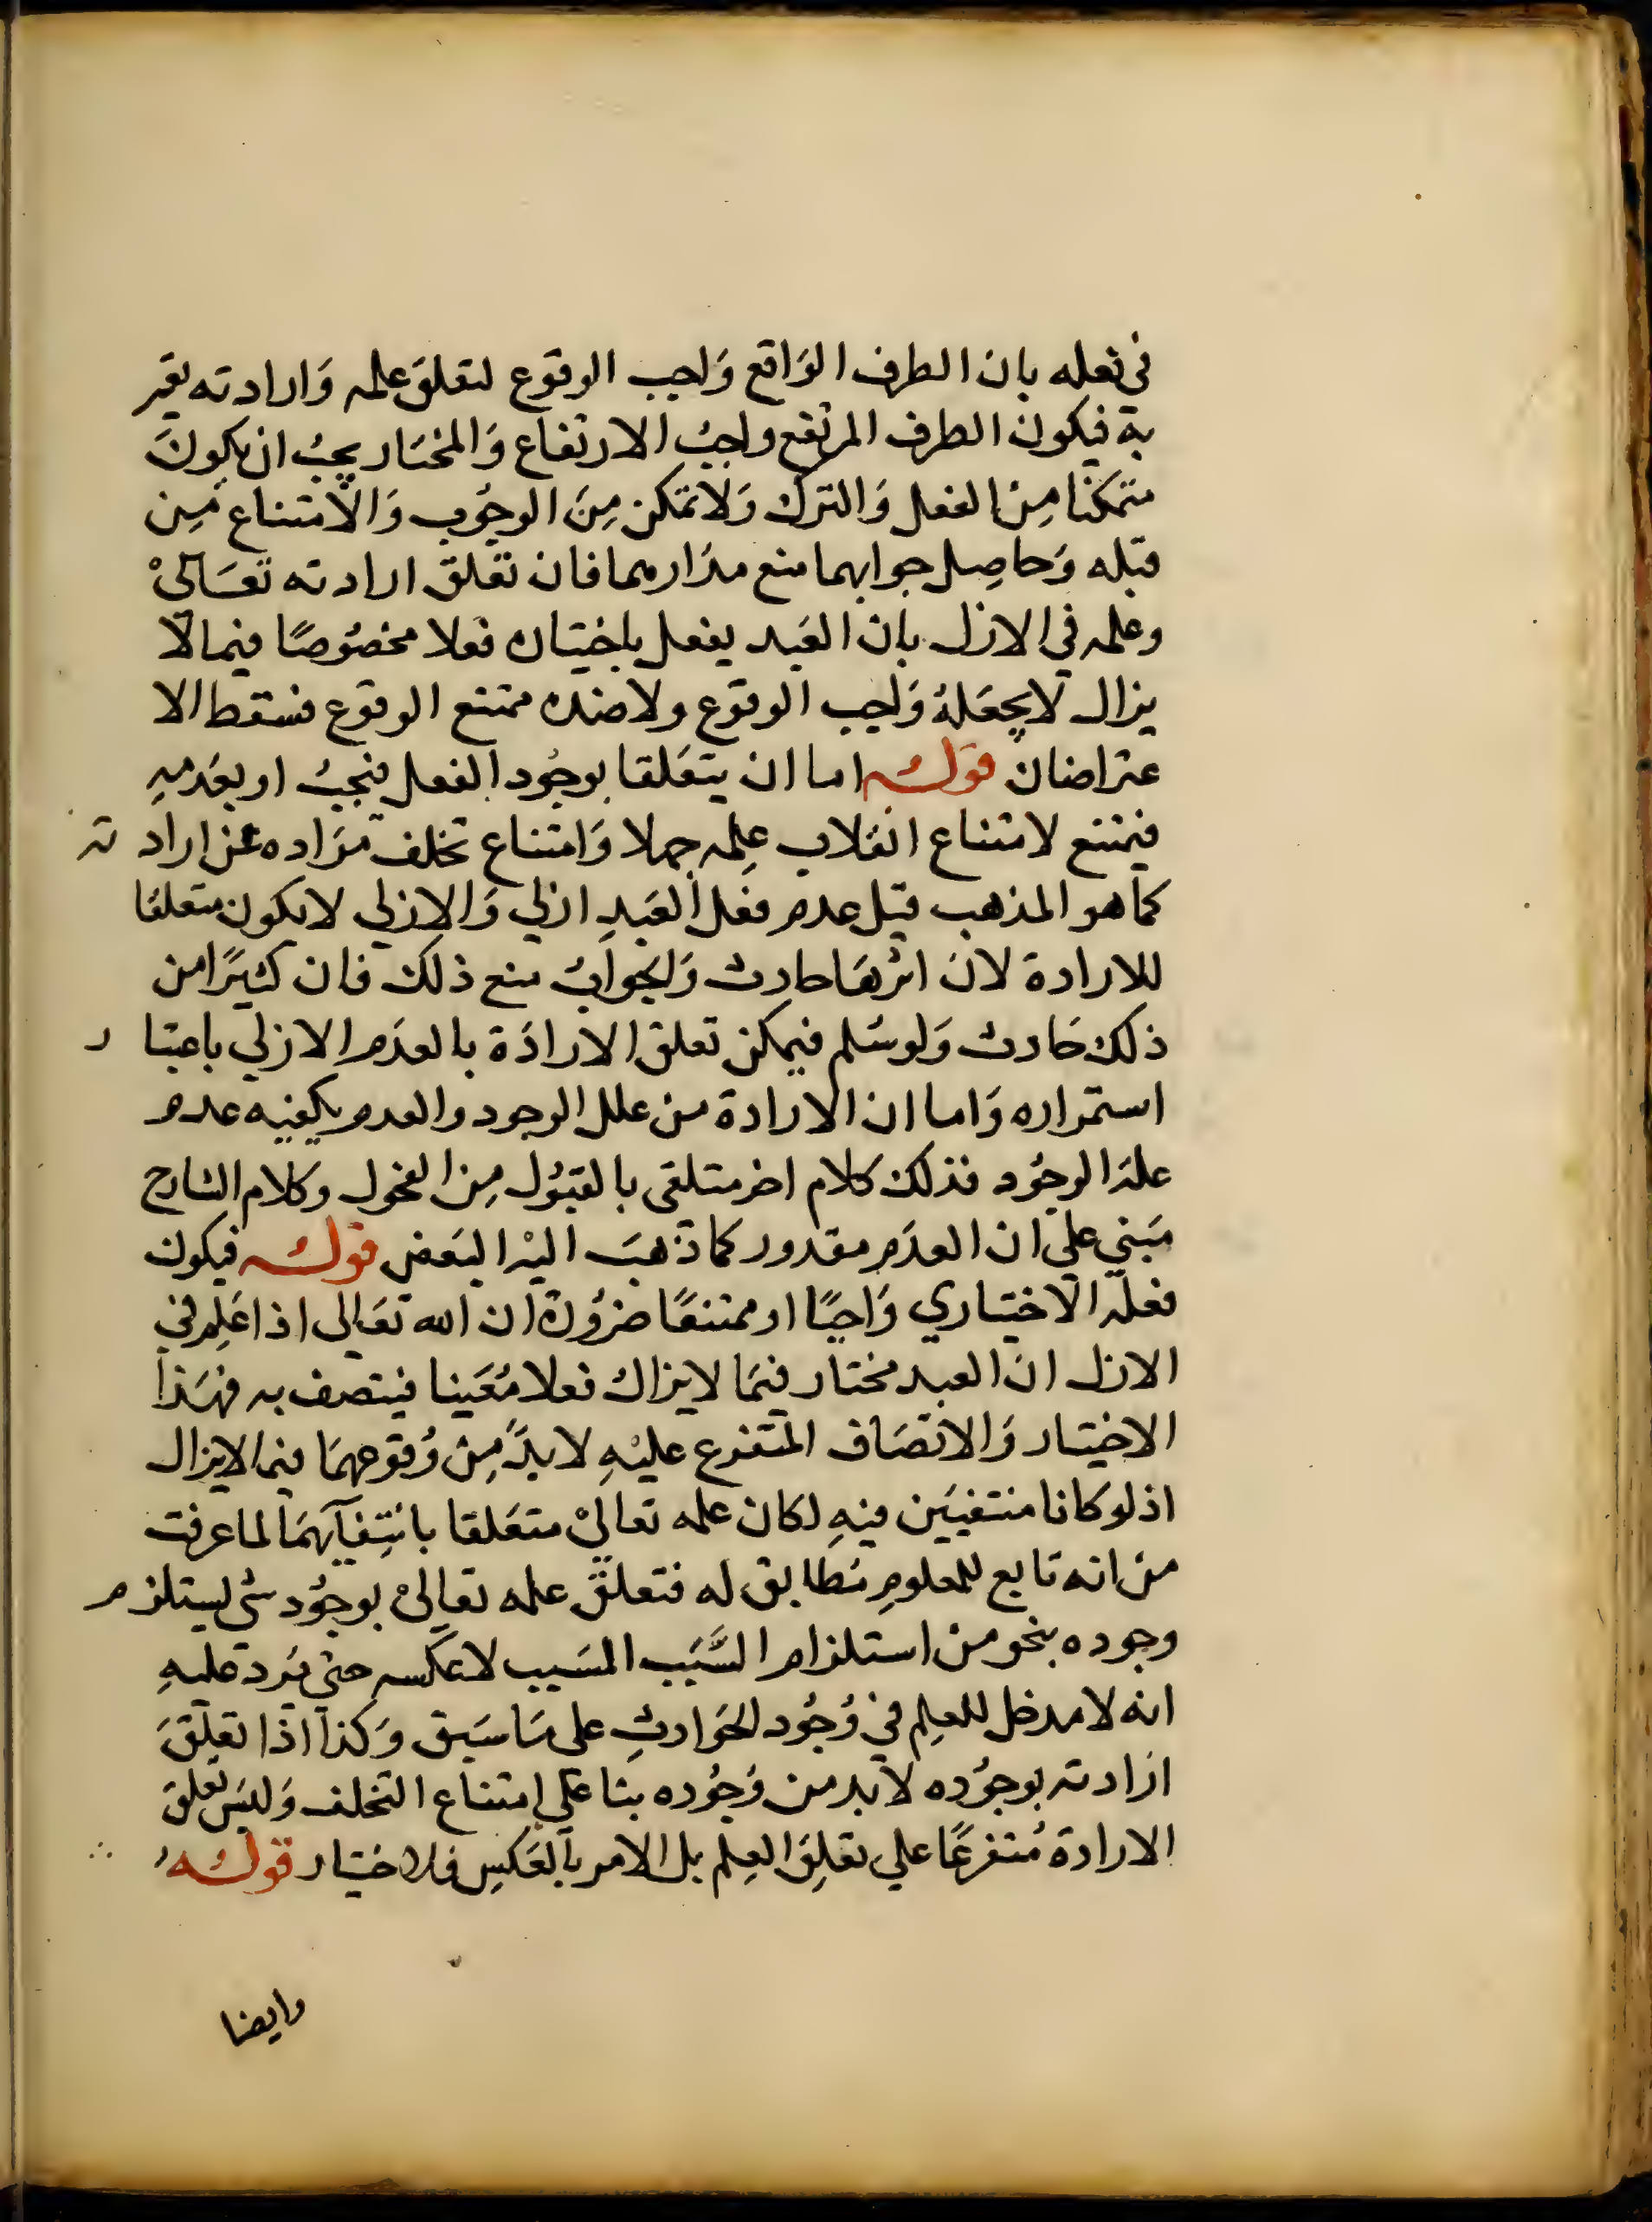 في فعله بان الطرف الوَاقع وَاجب الوقوع لتعلق علمه وَارادته تعـ
به فيكون الطرف المرتفع واجبُ الارتفاع وَالمختَار يجبُ ان يكونَ
متمكنًا مِنْ الفعل وَالترك وَلا تمكن مِنَ الوجوُب وَالامتناع مِن
قبله وَحاصِل جوابهما منع مدارهما فان تعلق ارادته تعَالىْ
وعلمه في الازل بان العَبد يفعل باختياره فعلا مخصُوصًا فيما لا
يزال لا يجعَلهُ وَاجب الوقوع ولا ضده ممتنع الوقوع فسقط الا
عتراضان قوله اما ان يتعَلقا بوجُود الفعل فيجبُ او بعَدمهِ
فيمتنع لامتناع انقلاب عِلمه جهلا وَامتناع تخلف مرَاده عَن اراد ته
كما هو المذهب قيل عدم فعل العَبدِ ازلي وَالازلي لا يكون متعلقا
للارادة لان اثرهَا حادث وَالجوابُ منع ذلك فان كثيرًا من
ذلك حَادث وَلو سُلم فيمكن تعلق الارادَة بالعدَم الازلي باعتبا ر
استمراره وَاما ان الارادة من علل الوجود والعدم يكفيه عدم
علة الوجُود فذلك كلام اخر متلقى بالقبُول مِن الفحول وكلام الشارح
مَبني علي ان العدَم مقدور كما ذهبَ اليْه البَعض قوله فيكون
فعله الاختيَاري وَاجبًا او ممتنعًا ضرُورة ان الله تعَالى اذا عَلِم في
الازل ان العبد مختار فيمَا لا يزال فعلا مُعَينا فيتصف به فهَذا
الاختيَار وَالاتصَاف المتفرع عليْهِ لا بدَّ مِنْ وُقوعهمَا فيما لايزال
اذ لو كانا منتفيَين فيهِ لكان علمه تعاليْ متعَلقا بانتِفآئهمَا لما عرفت
من انه تابع للمعلومِ مُطابق له فتعلق علمه تعاليْ بوجُود شي يستلزم
وجوده بنحو من استلزام السَّبَب المسَبب لا عكسه حتي يَرد عليهِ
انه لا مدخل للعِلم في وُجُود الحَوادثِ على مَا سَبق وَكذا اذا تعلقَ
ارَادته بوجوُده لا بد من وُجُوده بنا علي امتناع التخلف وَليسَ تعلق
الارادة مُتفرعًا علي تعلقِ العِلم بل الامر بالعَكسِ فلا اختيَار قوله
وايضا